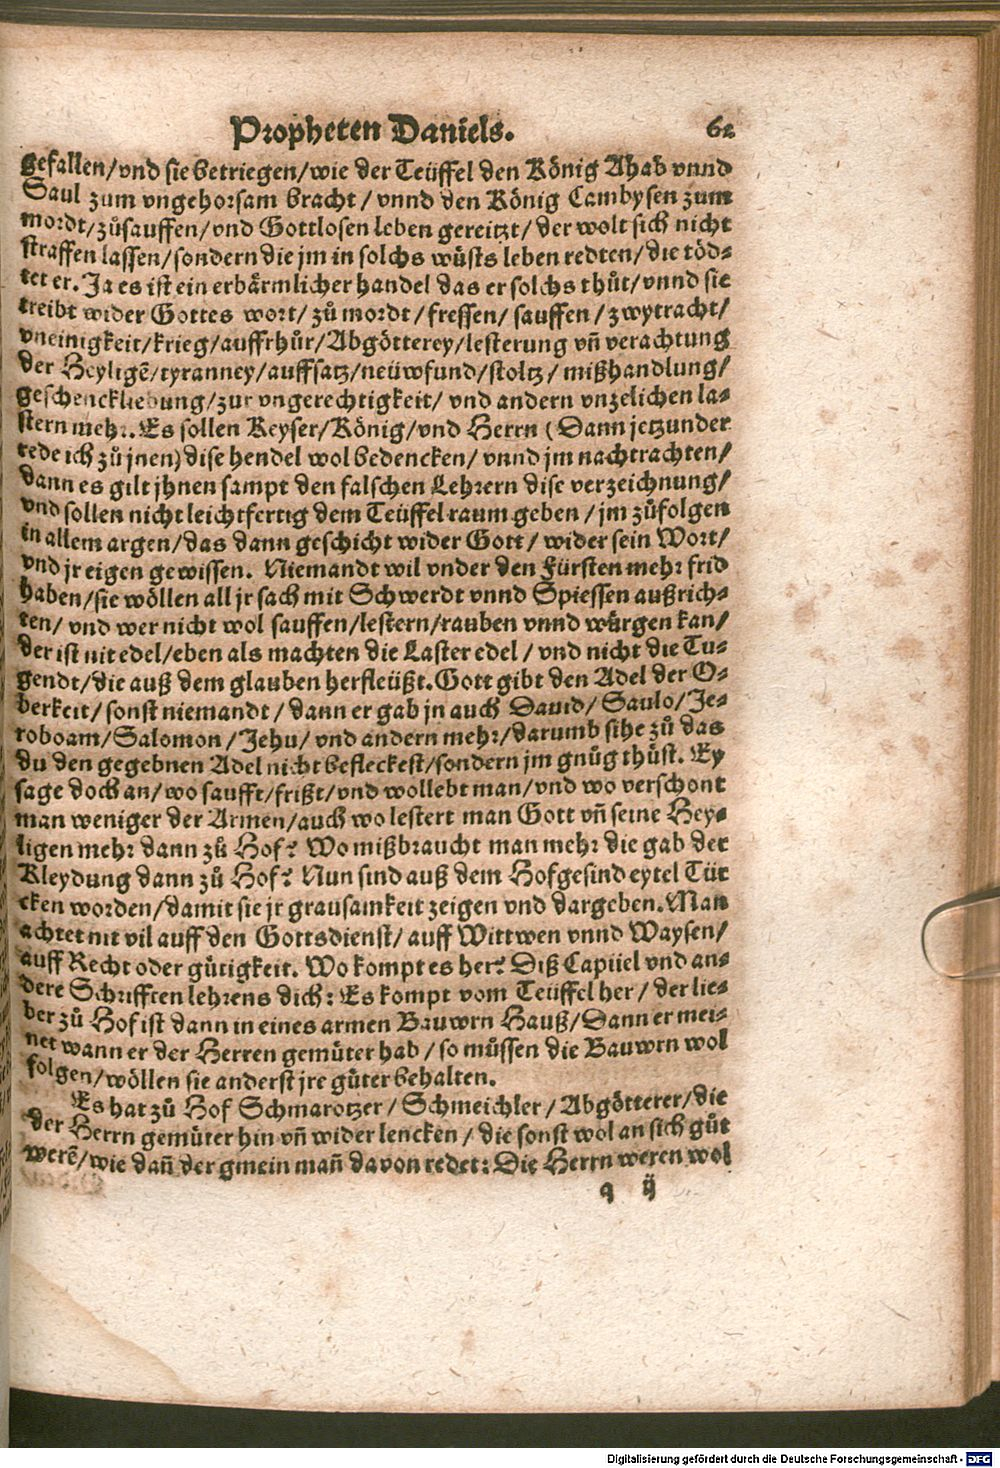 Propheten Daniels. 62
gefallen/vnd sie betriegen/wie der Teüffel den König Ahab vnnd
Saul zum vngehorsam bracht/vnnd den König Cambysen zum
mordt/zůsauffen/vnd Gottlosen leben gereitzt/der wolt sich nicht
straffen lassen/sondern die jm in solchs wůsts leben redten/die töd-
tet er. Ja es ist ein erbärmlicher handel das er solchs thůt/vnnd sie
treibt wider Gottes wort/zů mordt/fressen/sauffen/zwytracht/
vneinigkeit/krieg/auffrhůr/Abgötterey/lesterung vñ verachtung
der Heyligẽ/tyranney/auffsatz/neüwfund/stoltz/mißhandlung/
geschenckliebung/zur vngerechtigkeit/vnd andern vnzelichen la-
stern mehr. Es sollen Keyser/König/vnd Herrn (Dann jetzunder
rede ich zů jnen) dise hendel wol bedencken/vnnd jm nachtrachten/
dann es gilt jhnen sampt den falschen Lehrern dise verzeichnung/
vnd sollen nicht leichtfertig dem Teüffel raum geben/jm zůfolgen
in allem argen/das dann geschicht wider Gott/wider sein Wort/
vnd jr eigen gewissen. Niemandt wil vnder den Fürsten mehr frid
haben/sie wöllen all jr sach mit Schwerdt vnnd Spiessen außrich-
ten/vnd wer nicht wol sauffen/lestern/rauben vnnd würgen kan/
der ist nit edel/eben als machten die Laster edel/vnd nicht die Tu-
gendt/die auß dem glauben herfleüßt. Gott gibt den Adel der O-
berkeit/sonst niemandt/dann er gab jn auch Dauid/Saulo/Je-
roboam/Salomon/Jehu/vnd andern mehr/darumb sihe zů das
du den gegebnen Adel nicht befleckest/sondern jm gnůg thůst. Ey
sage doch an/wo saufft/frißt/vnd wollebt man/vnd wo verschont
man weniger der Armen/auch wo lestert man Gott vñ seine Hey-
ligen mehr dann zů Hof? Wo mißbraucht man mehr die gab der
Kleydung dann zů Hof? Nun sind auß dem Hofgesind eytel Tür
cken worden/damit sie jr grausamkeit zeigen vnd dargeben. Man
achtet nit vil auff den Gottsdienst/auff Wittwen vnnd Waysen/
auff Recht oder gütigkeit. Wo kompt es her? Diß Capitel vnd an-
dere Schrifften lehrens dich: Es kompt vom Teüffel her/der lie-
ber zů Hof ist dann in eines armen Bauwrn Hauß/Dann er mei-
net wann er der Herren gemüter hab/so müssen die Bauwrn wol
folgen/wöllen sie anderst jre güter behalten.
Es hat zů Hof Schmarotzer/Schmeichler/Abgötterer/die
der Herrn gemüter hin vñ wider lencken/die sonst wol an sich gůt
werẽ/wie dañ der gmein mañ davon redet: Die Herrn weren wol
q ij
Digitalisierung gefördert durch die Deutsche Forschungsgemeinschaft - DFG